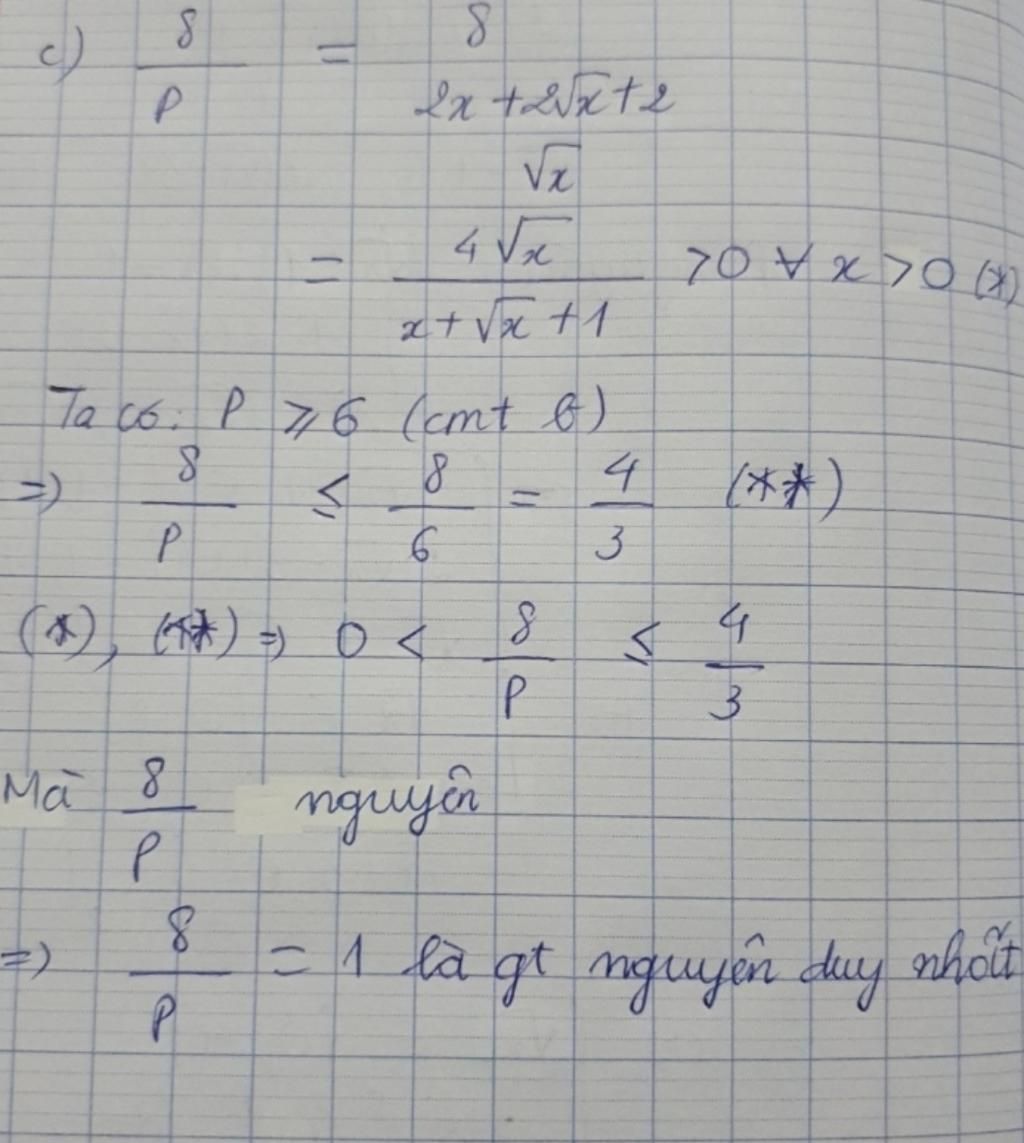 c) 8/P = 8/((2x + 2√x + 2)/√x)
= 4√x/(x + √x + 1) > 0 ∀ x > 0 (*)
Ta có: P ⩾ 6 (cmt b)
=) 8/P ≤ 8/6 = 4/3 (**)
(*), (**) =) 0 < 8/P ≤ 4/3
Mà 8/P nguyên
=) 8/P = 1 là gt nguyên duy nhất